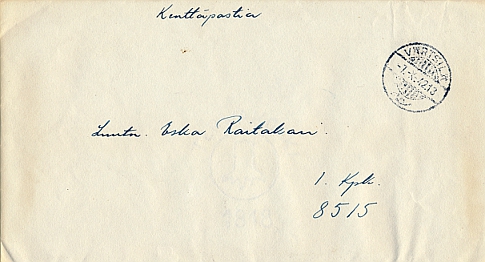 Kenttäpostia
VÄRTSILÄ
Luutn. Eska Raitakari.
1. Kpk.
8515